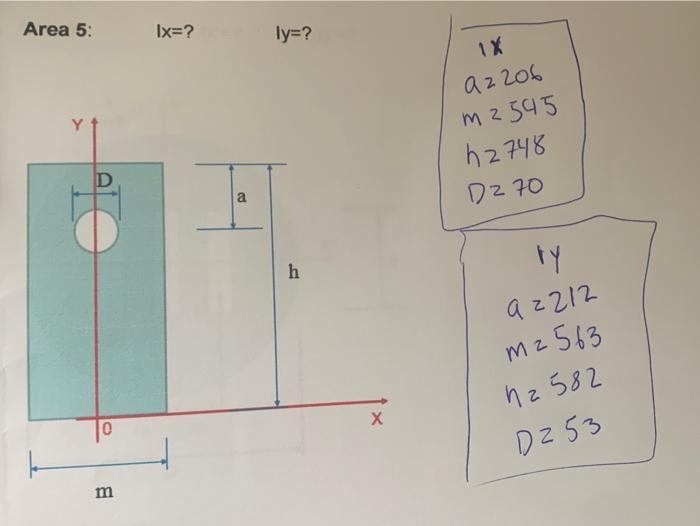 Area 5: Ix=? Iy=?
Y
D
a
h
O
X
m
IX
a=206
m=545
h=748
D=70
IY
a=212
m=563
h=582
D=53